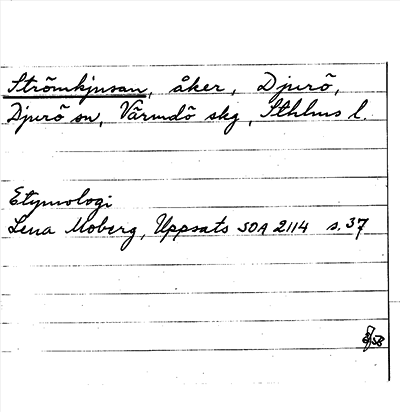 Strömkjusan, åker, Djurö,
Djurö sn, Värmdö skg, Sthlms l.
Etymologi
Lena Moberg, Uppsats SOA 2114 s. 37